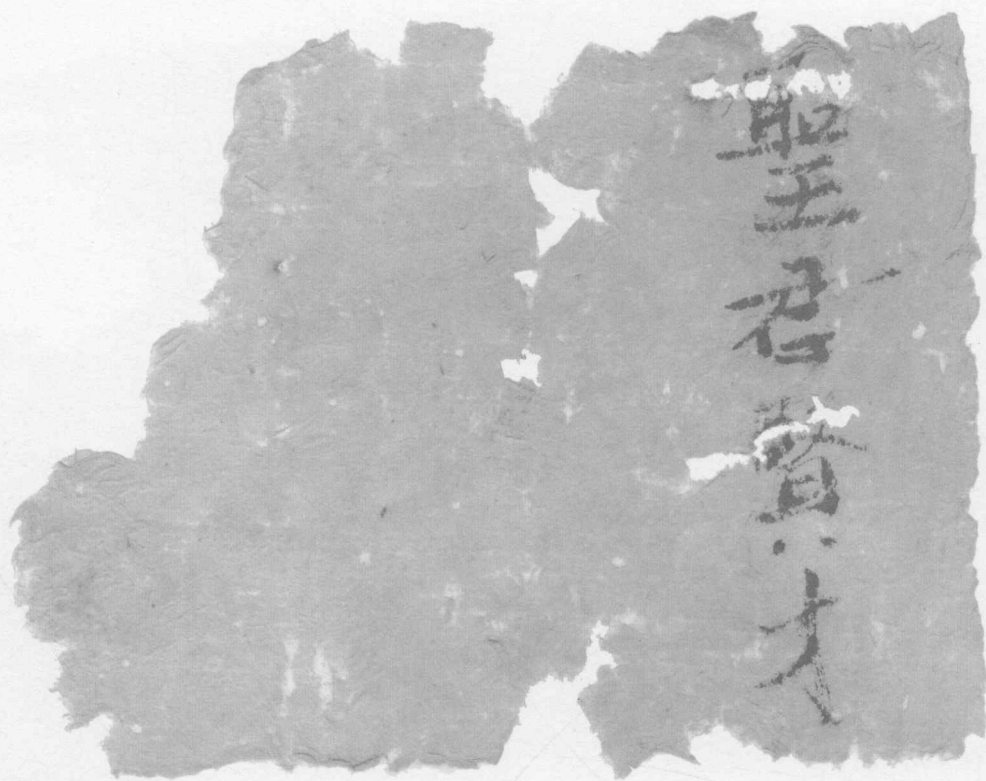 聖君賢才